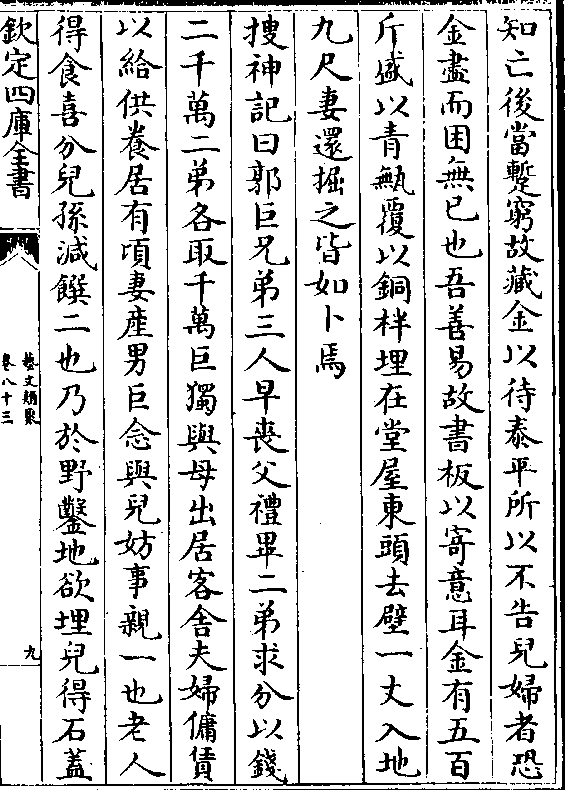 知亡後當蹔窮故藏金以待泰平所以不告兒婦者恐
金盡而困無已也吾善易故書板以寄意耳金有五百
斤盛以青甒覆以銅柈埋在堂屋東頭去壁一丈入地
九尺妻還掘之皆如卜焉
搜神記曰郭巨兄弟三人早喪父禮畢二弟求分以錢
二千萬二弟各取千萬巨獨與母出居客舍夫婦傭賃
以給供養居有頃妻產男巨念與兒妨事親一也老人
得食喜分兒孫減饌二也乃於野鑿地欲埋兒得石蓋
欽定四庫全書
藝文類聚
卷八十三
九